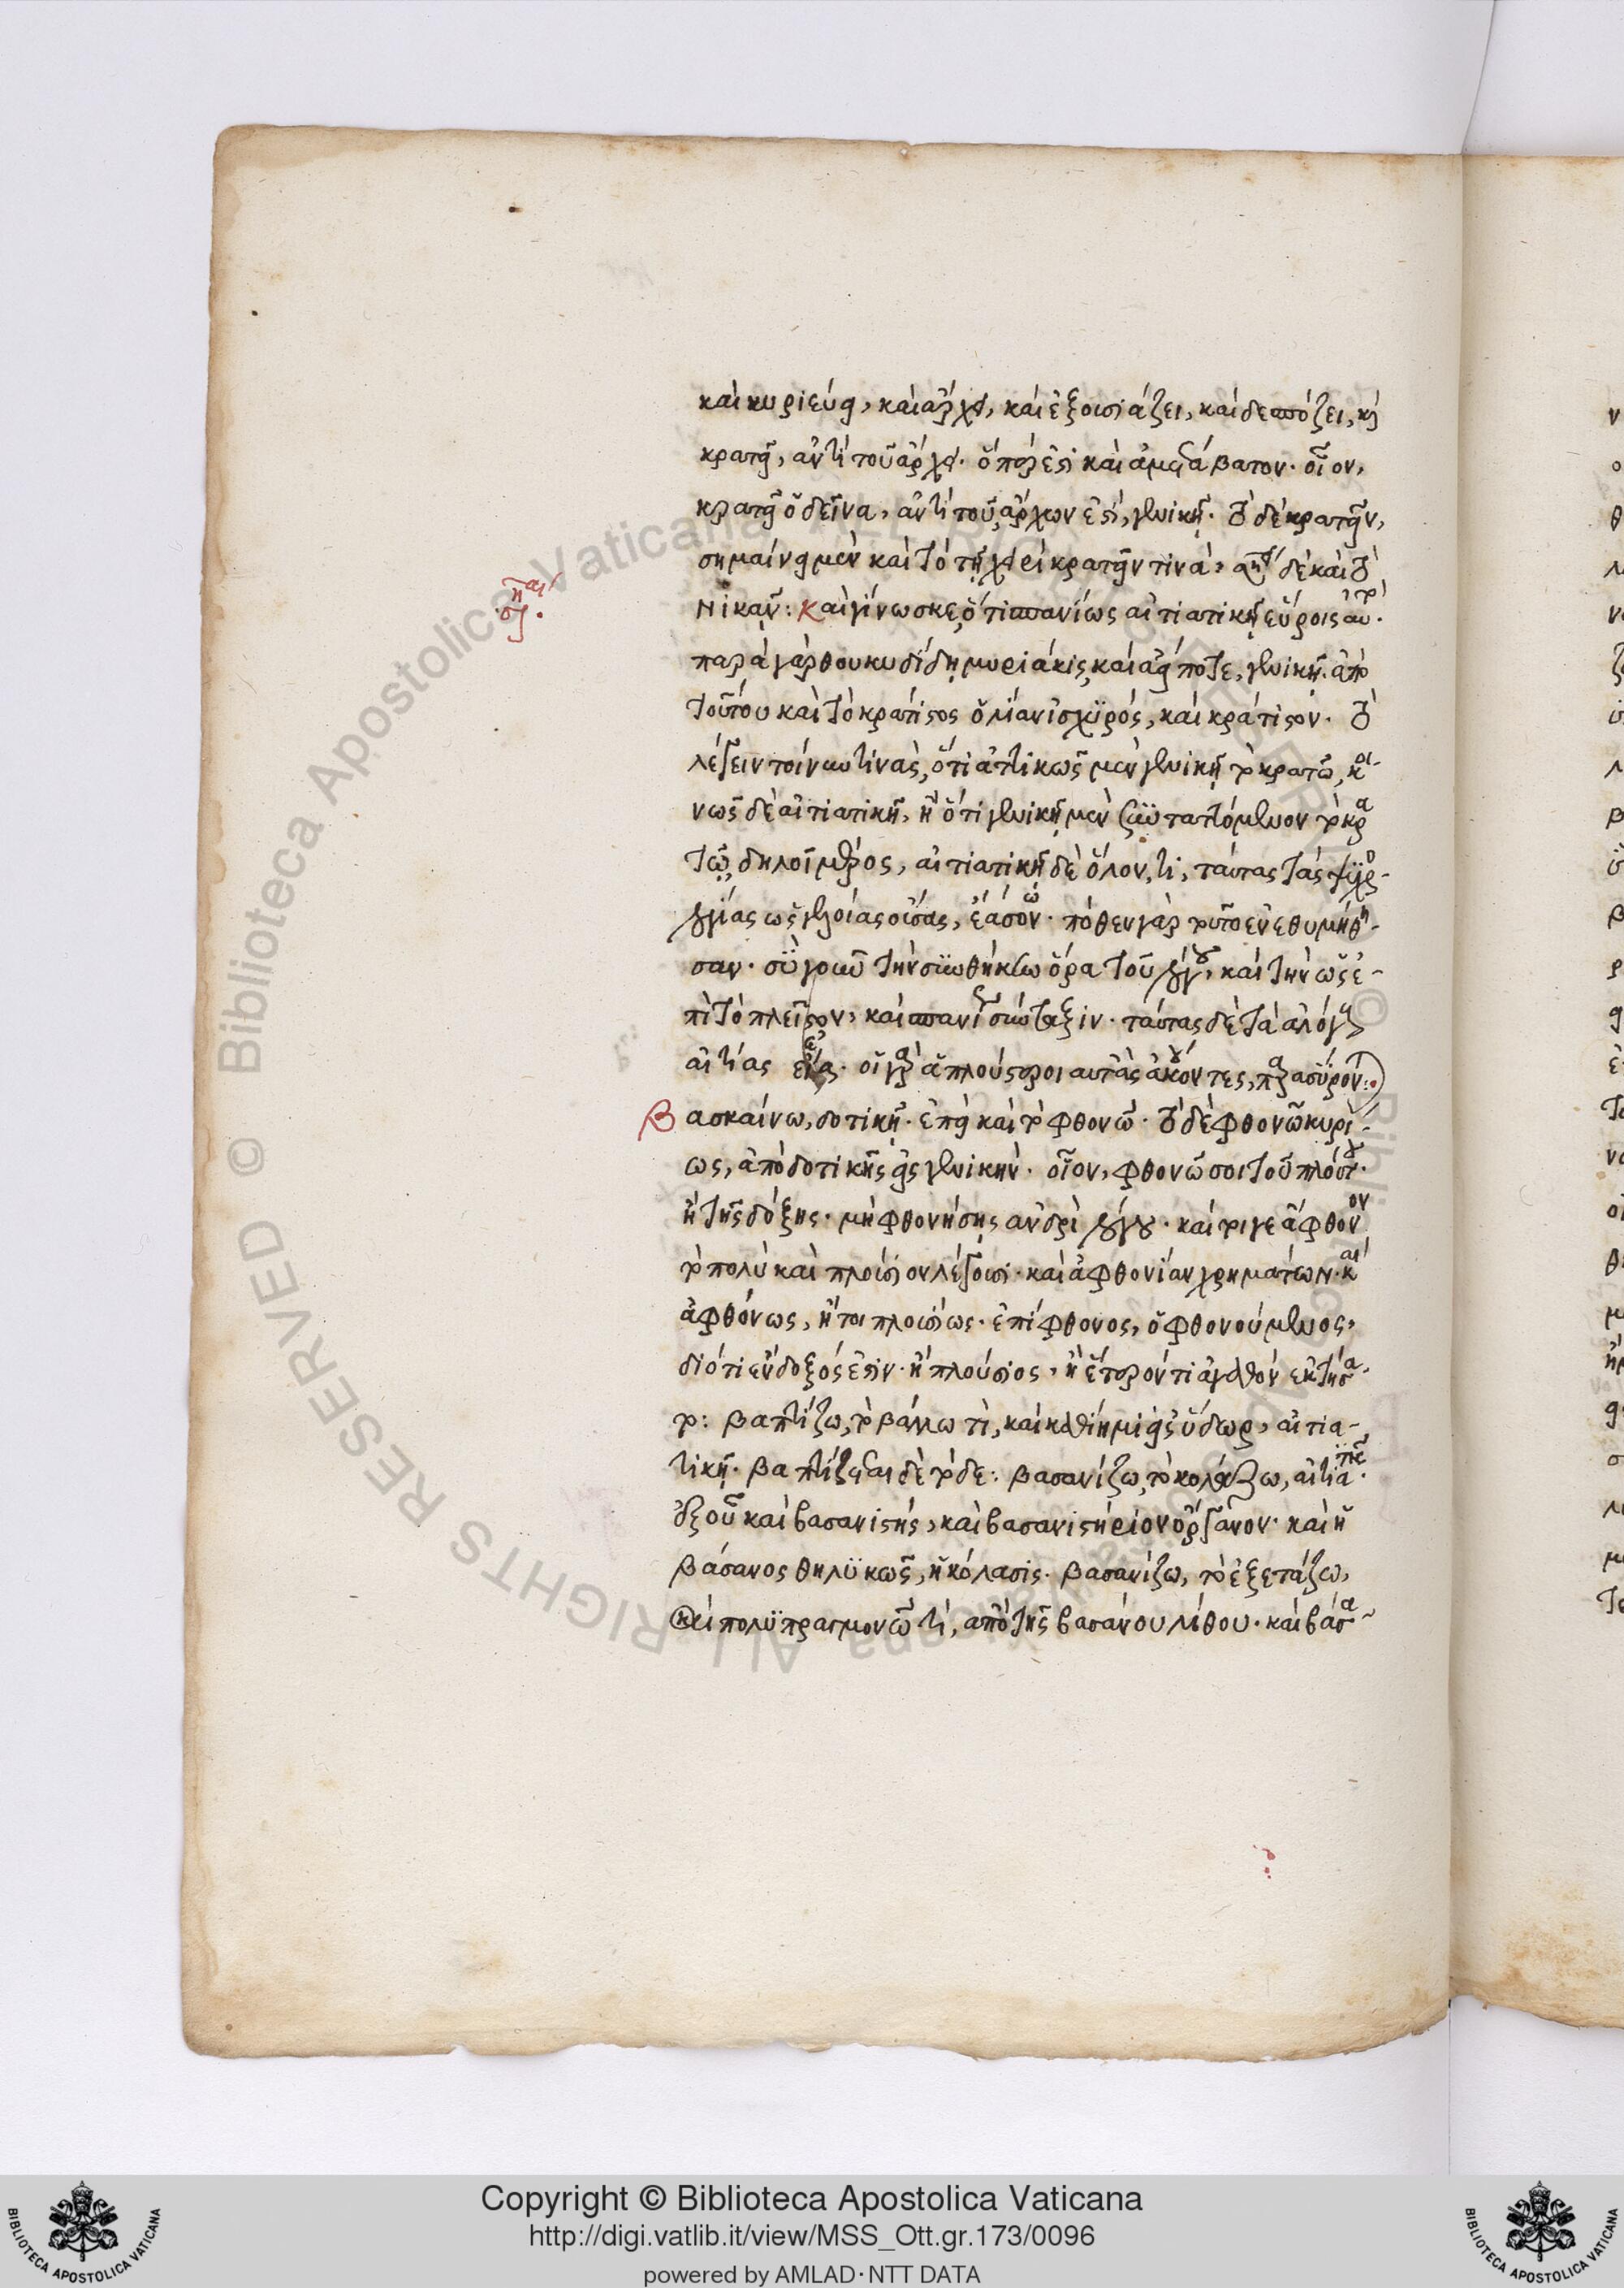 καὶ κυριεύει, καὶ ἄρχει, καὶ ἐξουσιάζει, καὶ δεσπόζει, καὶ
κρατεῖ, ἀντὶ τοῦ ἄρχει. ὅπερ ἐστὶ καὶ ἀμετάβατον. οἷον,
κρατεῖ ὁ δεῖνα, ἀντὶ τοῦ, ἄρχων ἐστί, γενικῇ. τὸ δὲ κρατεῖν,
σημαίνει μὲν καὶ τὸ τῇ χειρὶ κρατεῖν τινά, δὲ καὶ τὸ
νικᾶν: Καὶ γίνωσκε, ὅτι σπανίως αἰτιατικῇ εὕροις αὐτό.
παρὰ γὰρ θουκυδίδῃ μυριάκις, καὶ ἀεί ποτε, γενικῇ. ἀπὸ
τούτου καὶ τὸ κράτιστος ὁ λίαν ἰσχυρός, καὶ κράτιστον. τὸ
λέγειν τοίνυν τινὰς, ὅτι ἀττικῶς μὲν γενικῇ τὸ κρατῶ, κοι-
νῶς δὲ αἰτιατικῇ, ἢ ὅτι γενικῇ μὲν συνταττόμενον τὸ κρα
τῶ, δηλοῖ μέρος, αἰτιατικῇ δὲ ὅλον τι, ταύτας τὰς ψυχρο-
λογίας ὡς γελοίας οὔσας, ἐάσον. πόθεν γὰρ τοῦτο ἐνεθυμήθη-
σαν. σὺ γοῦν τὴν συνθήκην ὅρα τοῦ λόγου, καὶ τὴν ὡς ἐ-
πὶ τὸ πλεῖστον, καὶ σπανίως σύνταξιν. ταύτας δὲ τὰς ἀλόγους
αἰτίας ἔα. οἱ γὰρ ἁπλούστεροι αὐτὰς ἀκούοντες, παρασύρονται:
Βασκαίνω, δοτικῇ. ἐπεὶ καὶ τὸ φθονῶ. τὸ δὲ φθονῶ κυρί-
ως, ἀπὸ δοτικῆς εἰς γενικήν. οἷον, φθονῶ σοι τοῦ πλούτου.
ἢ τῆς δόξης. μὴ φθονήσῃς ἀνδρὶ λόγου. καίτοιγε ἄφθονον
τὸ πολὺ καὶ πλούσιον λέγουσι. καὶ ἀφθονίαν χρημάτων. καὶ
ἀφθόνως, ἤτοι πλουσίως. ἐπίφθονος, ὁ φθονούμενος,
διότι ἔνδοξός ἐστιν. ἢ πλούσιος, ἢ ἕτερόν τι ἀγαθὸν ἐκτήσα-
το: βαπτίζω, τὸ βάλλω τὶ, καὶ καθίημι εἰς ὕδωρ, αἰτια-
τικῇ. βαπτίζεται δὲ τόδε: βασανίζω, τὸ κολάζω, αἰτιατικῇ.
ἐξ οὗ καὶ βασανιστής, καὶ βασανιστήριον ὄργανον. καὶ ἡ
βάσανος θηλυκῶς, ἡ κόλασις. βασανίζω, τὸ ἐξετάζω,
καὶ πολυπραγμονῶ τὶ, ἀπὸ τῆς βασάνου λίθου. καὶ βάσα-
Copyright © Biblioteca Apostolica Vaticana
http://digi.vatlib.it/view/MSS_Ott.gr.173/0096
powered by AMLAD·NTT DATA